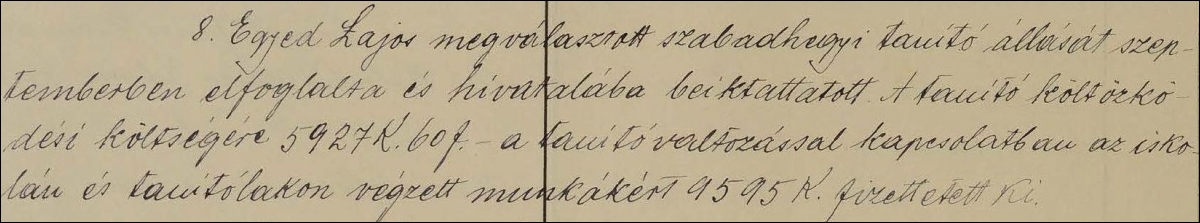 8. Egyed Lajos megválasztott szabadhegyi tanító állását szep-
temberben elfoglalta és hivatalába beiktattatott. A tanító költözkö-
dési költségére 5927 K. 60 f. - a tanítóváltozással kapcsolatban az isko-
lán és tanítólakon végzett munkákért 9595 K. fizettetett ki.